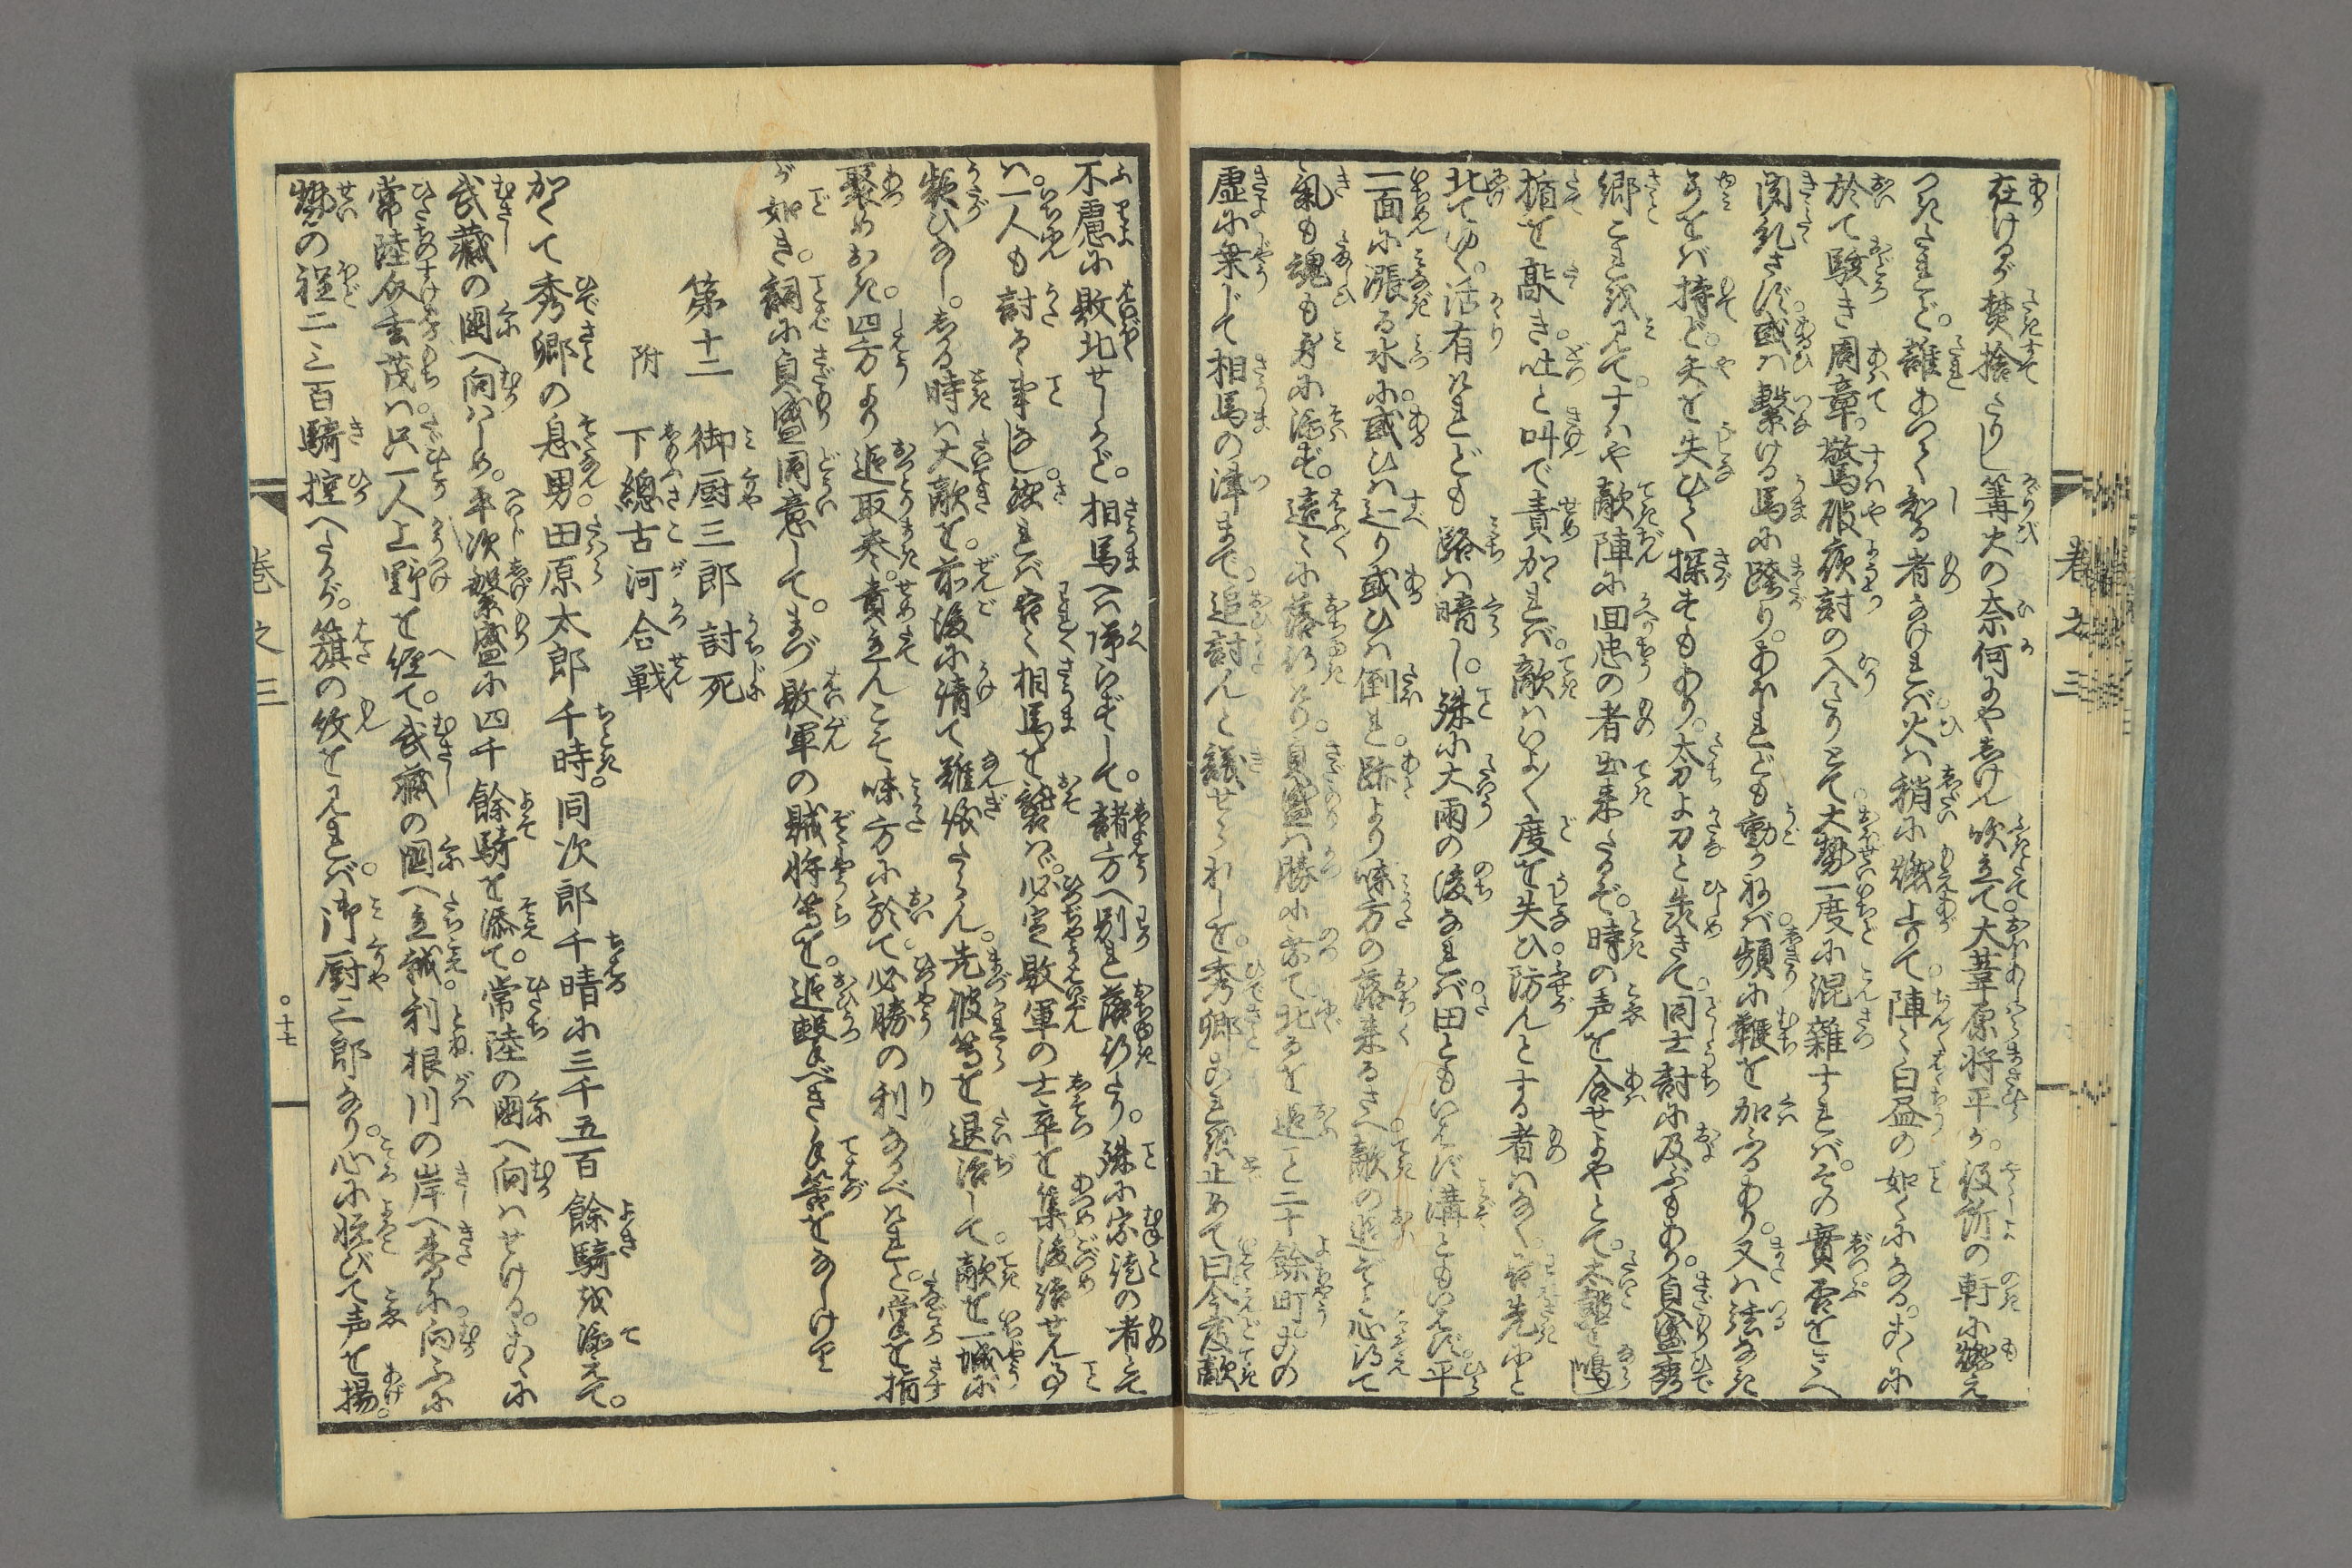 在けるが焚捨たりし篝火の奈何にや志けん吹立て大葦原将平が役所の軒に燃え
つきたれど。誰あつて知る者なければ火は稍に燃上りて陣々白昼の如くになる。こゝに
於て駭き周章。驚破夜討の入たりとて大勢一度に混雑すれば。その實否をさへ
聞糺さず。或は繋ける馬に跨り。あふれども動かねば頻に鞭を加ふるあり。又は弦なき
弓をば持ど。矢を失ひて探すもあり。太刀よ刀と犇きて。同士討に及ぶもあり。貞盛秀
郷これを見て。すはや敵陣に回忠の者出来たるぞ。時の声を合せよやとて。太鼓を鳴し
楯を敲き。吐と叫で責かくれば。敵はいよ〱度を失ひ。防んとする者はなく。我先にと
北てゆく。活有けれども路は暗し。殊に大雨の後なれば田ともいはず溝ともいはず。平
一面に漲る水に。或ひは辷り或ひは倒れ。跡より味方の落来るさへ敵の追ぞと心得て
氣も魂も身に添ず。遠々に落行けり。貞盛は勝に乗て北るを追こと二十餘町。この
虚に乗じて相馬の津まで。追討んと議せられしを。秀郷これを止めて曰今度敵
卷之三
不慮に敗北せしかど。相馬へは帰らずして。諸方へ別れ落行たり。殊に宗徒の者とて
は。一人も討る事なし。然れば容く相馬を襲はゞ。必定敗軍の士卒を集。後詰せん事
疑ひなし。志る時は大敵を。前後に請て難儀たらん。先彼等を退治して。敵を一城に
聚めおき。四方より追取巻。責立んこそ味方に於て。必勝の利なるべけれと。掌を指
が如き。詞に貞盛同意して。まづ敗軍の賊将等を。追撃べき手筈をなしけり
第十二　御厨三郎討死
附　下總古河合戦
かくて秀郷の息男。田原太郎千時。同次郎千晴に三千五百餘騎を添えて。
武藏の國へ向はしめ。平次繁盛に四千餘騎を添て。常陸の國へ向はせける。こゝに
常陸介玄茂は。只一人上野を経て。武藏の國へ立越。利根川の岸へ来り。向ふに
勢の程二三百騎控へたるが。籏の紋を見れば。御厨三郎なり。心に悦びて声を揚。
卷之三
○十七